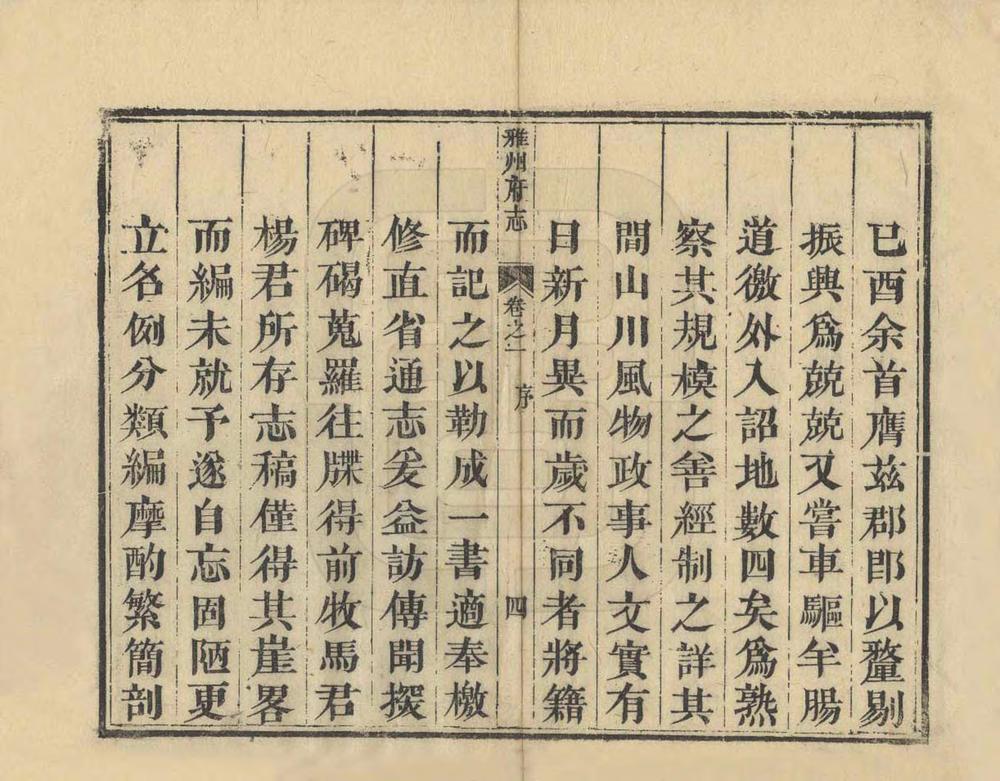 已酉余首膺茲郡郎以釐剔
振興爲兢兢又嘗車驅羊腸
道徼外入詔地數四矣爲熟
察其規模之善經制之詳其
間山川風物政事人文實有
日新月異而歲不同者將籍
雅州府志 卷之一 序 四
而記之以勒成一書適奉檄
修直省通志爰益訪傳聞摉
碑碣蒐羅往牒得前牧馬君
楊君所存志稿僅得其崖畧
而編未就予遂自忘固陋更
立名例分類編摩酌繁簡剖